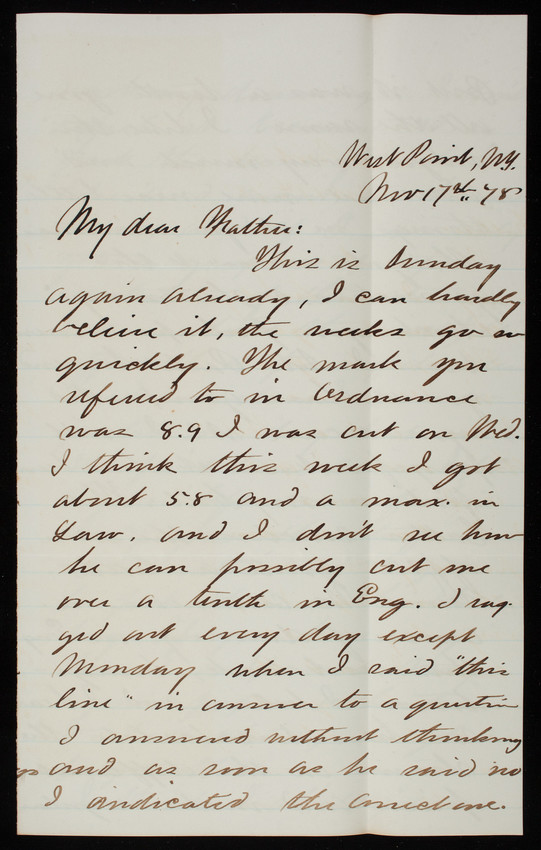 West Point, N.Y.
Nov 17th 78
My dear Father:
This is Sunday
again already, I can hardly
believe it, the weeks go so
quickly. The mark you
refered to in Ordnance
was 8.9 I was cut on Wed.
I think this week I got
about 5.8 and a max. in
Law. and I don't see how
he can possibly cut me
over a tenth in Eng. I rag-
ged out every day except
Monday when I said "this
line" in answer to a question
I answered without thinking
and as soon as he said no
I indicated the correct one.